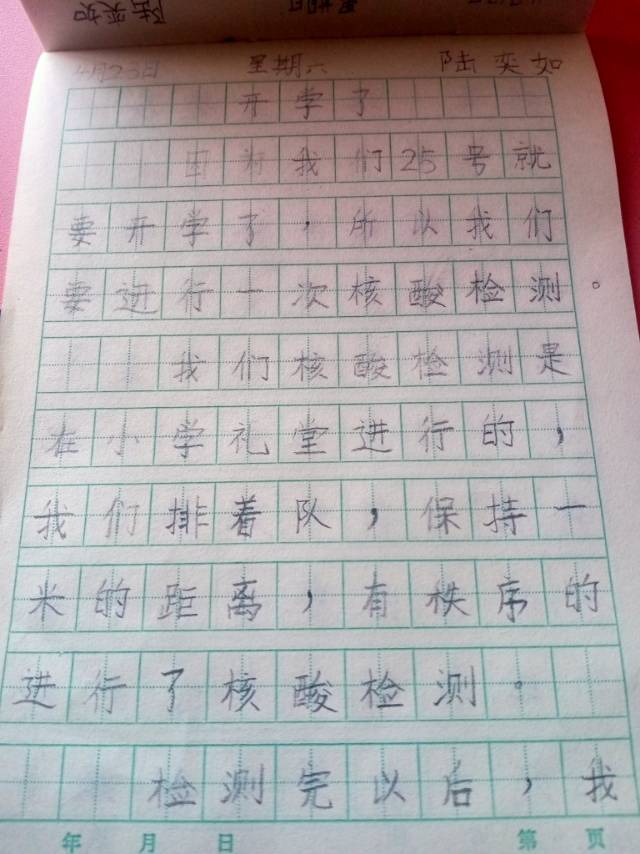 陆奕如 星期日
4月23日 星期六 陆奕如
开学了
因为我们25号就
要开学了，所以我们
要进行一次核酸检测。
我们核酸检测是
在小学礼堂进行的，
我们排着队，保持一
米的距离，有秩序的
进行了核酸检测。
检测完以后，我
年 月 日 第 页